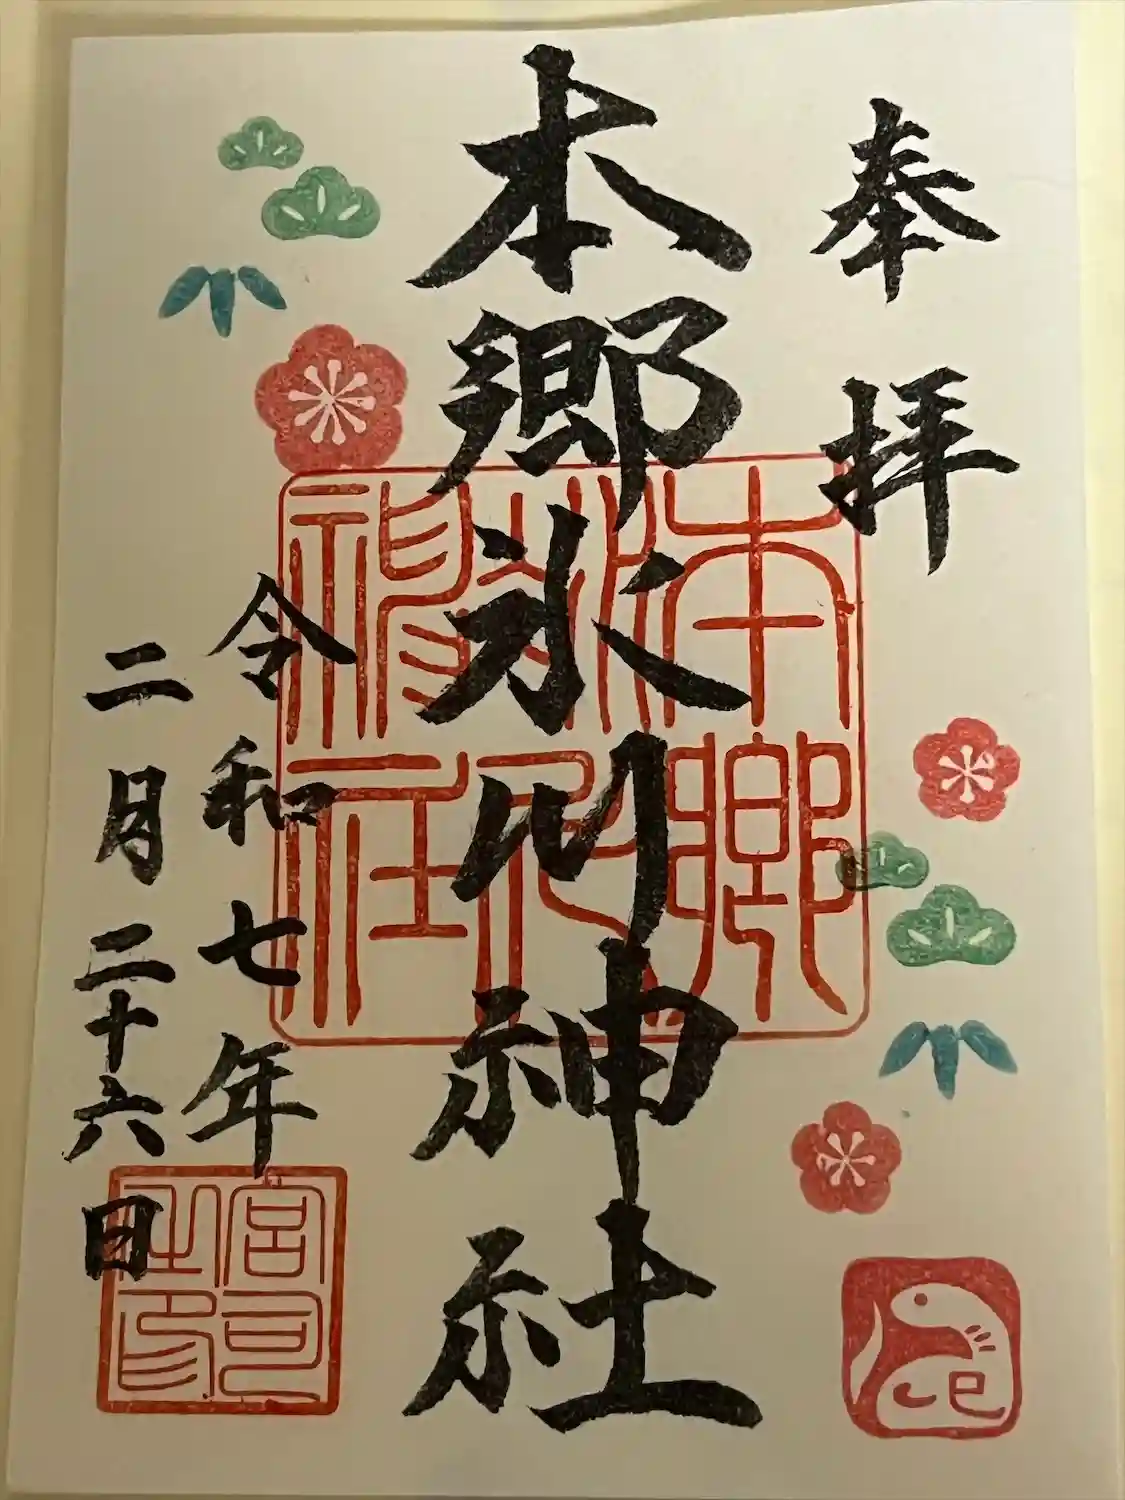 奉拝
本郷氷川神社
令和七年
二月二十六日
本郷
氷川
神社
宮司
之印
巳